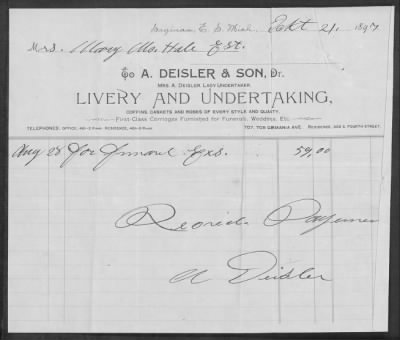 Saginaw, E. S. Mich. Sept 21. 1897
Mrs. Mary Hale Est.
To A. DEISLER & SON, Dr.
MRS. A. DEISLER, LADY UNDERTAKER.
LIVERY AND UNDERTAKING,
COFFINS, CASKETS AND ROBES OF EVERY STYLE AND QUALITY.
First-Class Carriages Furnished for Funerals, Weddings, Etc.
TELEPHONES, OFFICE, RESIDENCE, 707, 709 GERMANIA AVE. RESIDENCE, FOURTH STREET.
Aug 28 For Funeral Exps. 59,00
Payment
A Deisler